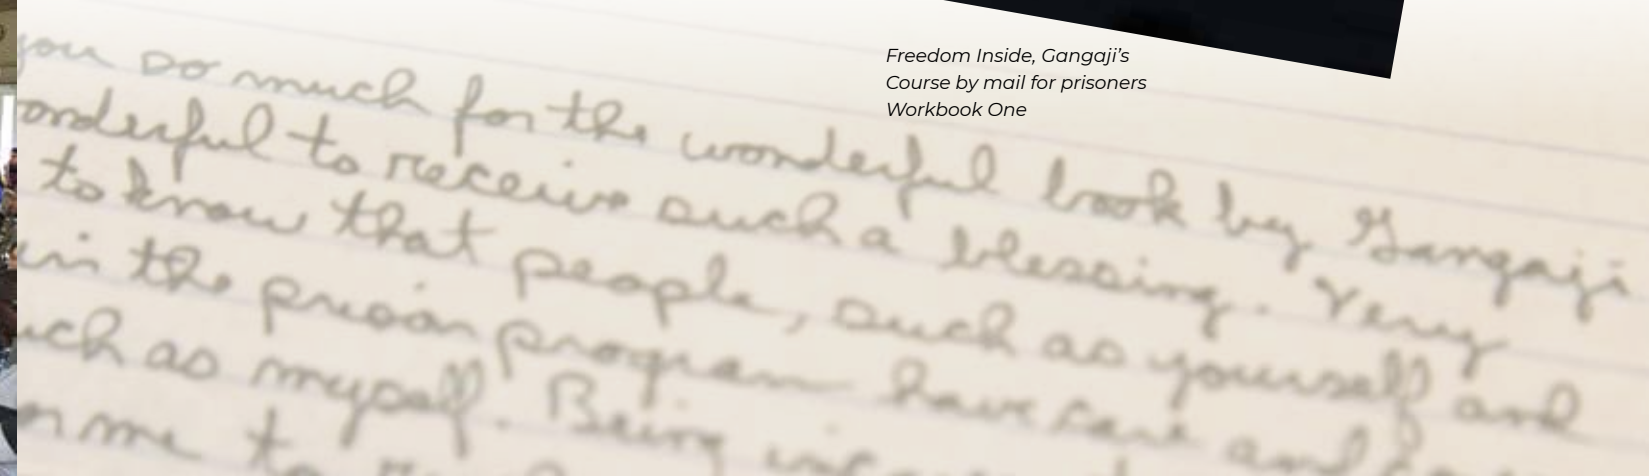 Freedom Inside, Gangaji’s
Course by mail for prisoners
Workbook One
you so much for the wonderful book by Gangaji
wonderful to receive such a blessing. Very
to know that people, such as yourself and
in the prison program have care and
such as myself. Being
me to